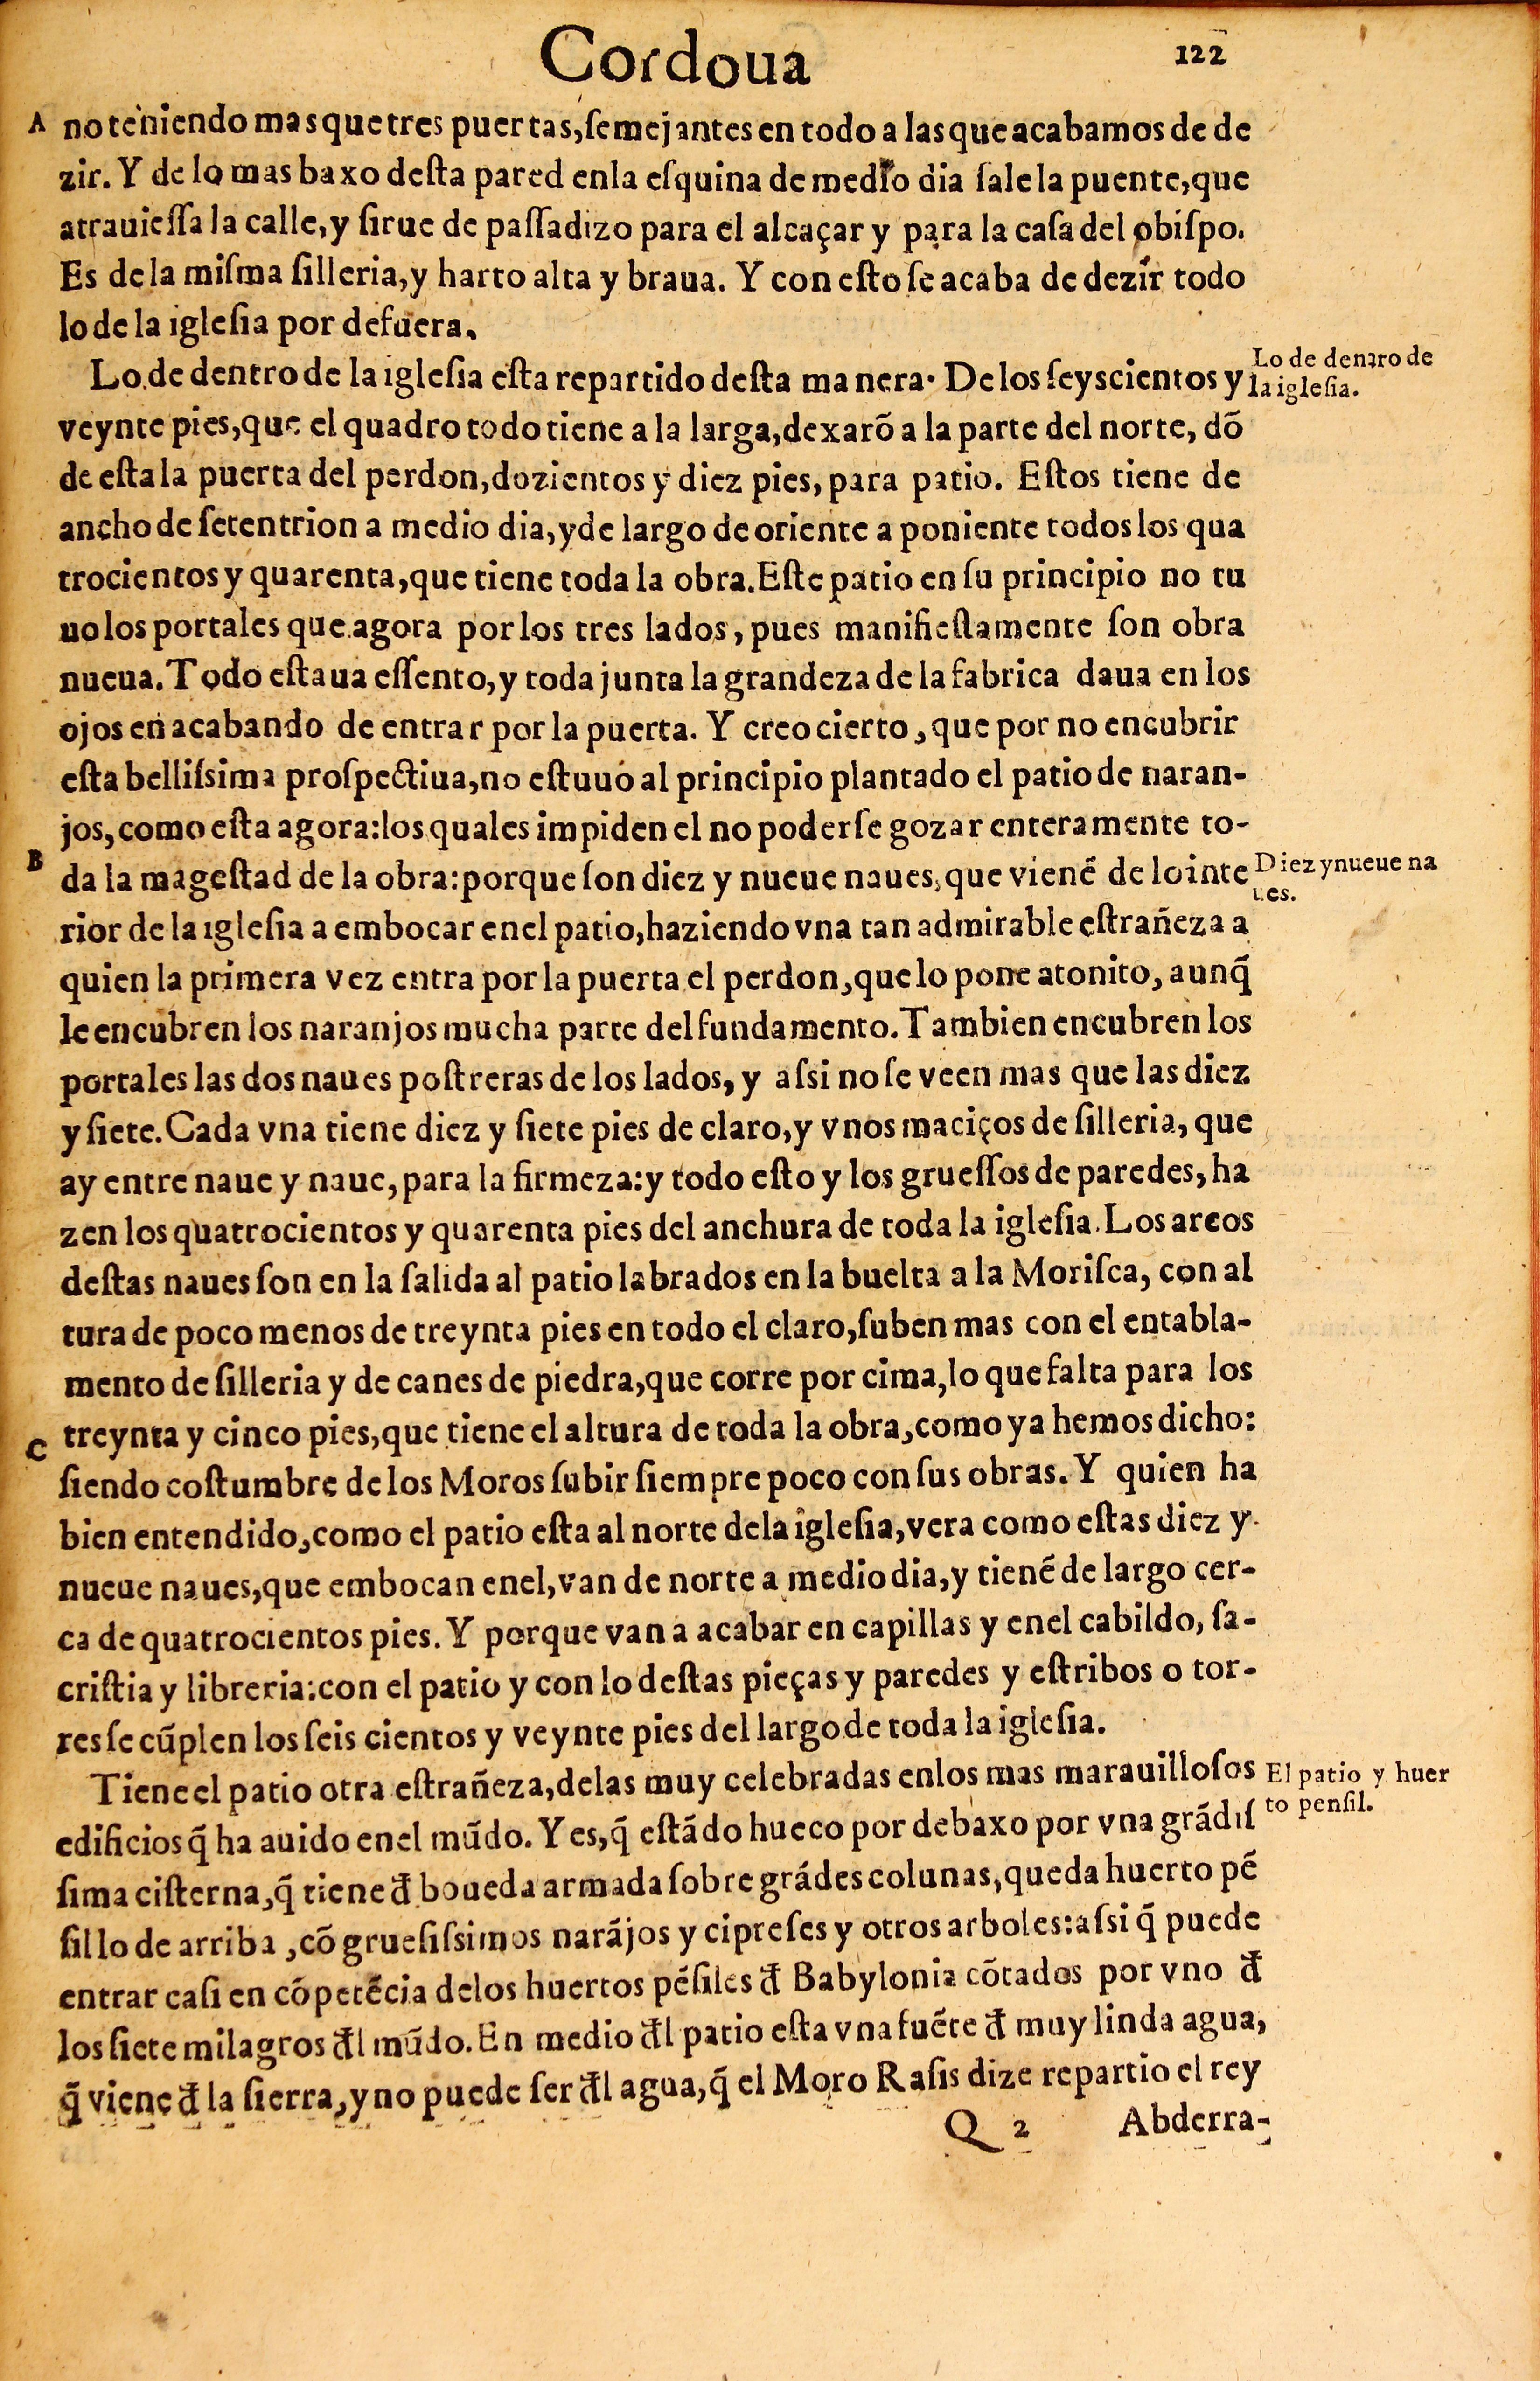 Cordoua 122
A no teniendo mas que tres puertas, ſemejantes en todo a las que acabamos de de
zir. Y de lo mas baxo deſta pared enla eſquina de medio dia ſale la puente, que
atrauieſſa la calle, y ſirue de paſſadizo para el alcaçar y para la caſa del obiſpo.
Es de la miſma ſilleria, y harto alta y braua. Y con eſto ſe acaba de dezir todo
lo de la igleſia por defuera.
Lo de dentro de la igleſia eſta repartido deſta manera. De los ſeyscientos y
Lo de dentro de
la igleſia.
veynte pies, que el quadro todo tiene a la larga, dexarõ a la parte del norte, dõ
de eſta la puerta del perdon, dozientos y diez pies, para patio. Eſtos tiene de
ancho de ſetentrion a medio dia, y de largo de oriente a poniente todos los qua
trocientos y quarenta, que tiene toda la obra. Eſte patio en ſu principio no tu
uo los portales que agora por los tres lados, pues manifieſtamente ſon obra
nueua. Todo eſtaua eſſento, y toda junta la grandeza de la fabrica daua en los
ojos en acabando de entrar por la puerta. Y creo cierto, que por no encubrir
eſta belliſsima proſpectiua, no eſtuuo al principio plantado el patio de naran-
jos, como eſta agora: los quales impiden el no poderſe gozar enteramente to-
B da la mageſtad de la obra: porque ſon diez y nueue naues, que vienẽ de lo inte
Diez y nueue na
ues.
rior de la igleſia a embocar enel patio, haziendo vna tan admirable eſtrañeza a
quien la primera vez entra por la puerta el perdon, que lo pone atonito, aunq̃
le encubren los naranjos mucha parte del fundamento. Tambien encubren los
portales las dos naues poſtreras de los lados, y aſsi no ſe veen mas que las diez
y ſiete. Cada vna tiene diez y ſiete pies de claro, y vnos maciços de ſilleria, que
ay entre naue y naue, para la firmeza: y todo eſto y los grueſſos de paredes, ha
zen los quatrocientos y quarenta pies del anchura de toda la igleſia. Los arcos
deſtas naues ſon en la ſalida al patio labrados en la buelta a la Moriſca, con al
tura de poco menos de treynta pies en todo el claro, ſuben mas con el entabla-
mento de ſilleria y de canes de piedra, que corre por cima, lo que falta para los
C treynta y cinco pies, que tiene el altura de toda la obra, como ya hemos dicho:
ſiendo coſtumbre de los Moros ſubir ſiempre poco con ſus obras. Y quien ha
bien entendido, como el patio eſta al norte dela igleſia, vera como eſtas diez y
nueue naues, que embocan enel, van de norte a mediodia, y tienẽ de largo cer-
ca de quatrocientos pies. Y porque van a acabar en capillas y enel cabildo, ſa-
criſtia y libreria: con el patio y con lo deſtas pieças y paredes y eſtribos o tor-
res ſe cũplen los ſeis cientos y veynte pies del largo de toda la igleſia.
Tiene el patio otra eſtrañeza, delas muy celebradas enlos mas marauilloſos
El patio y huer
to penſil.
edificios q̃ ha auido enel mũdo. Y es, q̃ eſtãdo hueco por debaxo por vna grãdiſ
ſima ciſterna, q̃ tiene đ boueda armada ſobre grãdes colunas, queda huerto pẽ
ſil lo de arriba, cõ grueſiſsimos narãjos y cipreſes y otros arboles: aſsi q̃ puede
entrar caſi en cõpetẽcia delos huertos pẽſiles đ Babylonia cõtados por vno đ
los ſiete milagros đl mũdo. En medio đl patio eſta vna fuẽte đ muy linda agua,
q̃ viene đ la ſierra, y no puede ſer đl agua, q̃ el Moro Raſis dize repartio el rey
Q 2 Abderra-